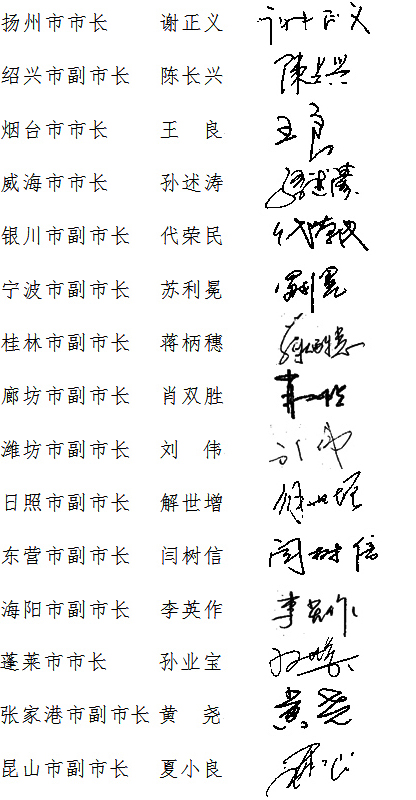 扬州市市长 谢正义 谢正义
绍兴市副市长 陈长兴 陳长兴
烟台市市长 王 良 王良
威海市市长 孙述涛 孙述涛
银川市副市长 代荣民 代荣民
宁波市副市长 苏利冕 苏利冕
桂林市副市长 蒋柄穗 蒋柄穗
廊坊市副市长 肖双胜
潍坊市副市长 刘 伟 刘伟
日照市副市长 解世增 解世增
东营市副市长 闫树信 闫树信
海阳市副市长 李英作 李英作
蓬莱市市长 孙业宝
张家港市副市长 黄 尧 黄尧
昆山市副市长 夏小良